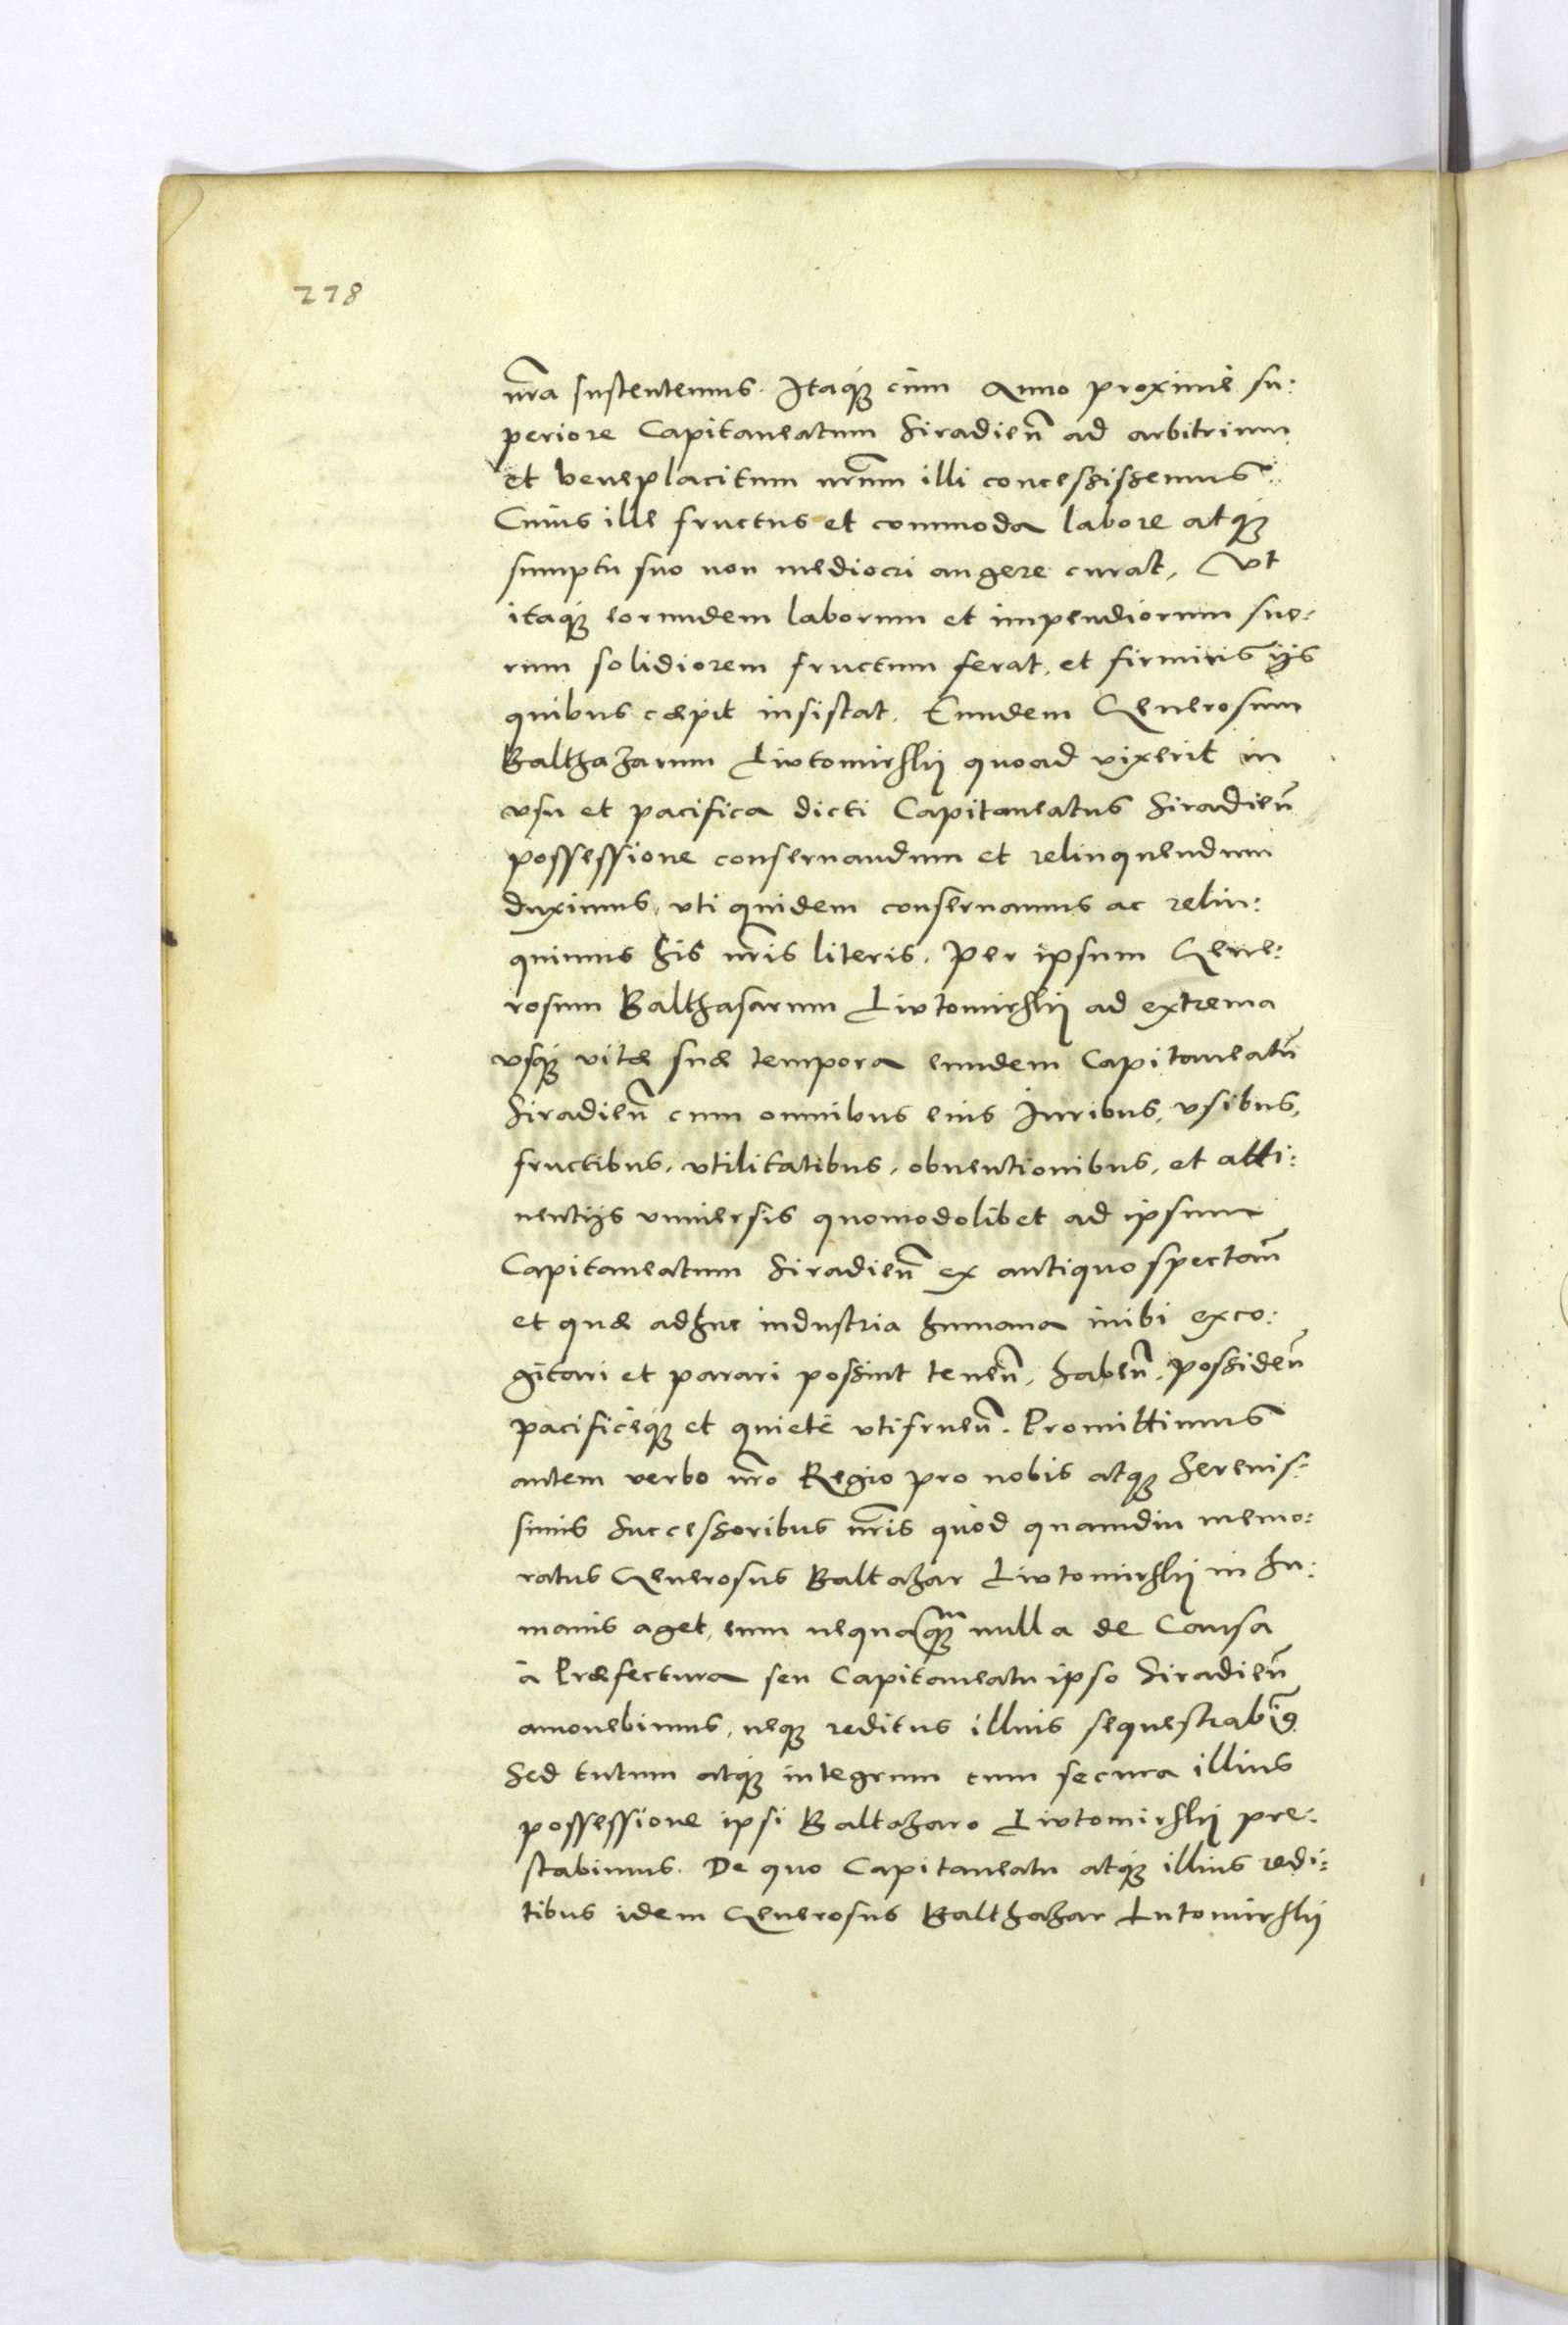 278
nr̃a sustentemus. Itaq́ꝫ cùm Anno proximè su:
periore Capitaneatum Siradień ad arbitrium
et beneplacitum nr̃um illi concessissemus:
Cuius ille fructus et commoda labore atq́ꝫ
sumptu suo non mediocri augere curat, Vt
itaq́ꝫ eorundem laborum et impendiorum suo:
rum solidiorem fructum ferat, et firmius ijs
quibus cæpit insistat. Eundem Generosum
Balthazarum Liutomirskij quoad vixerit in
vsu et pacifica dicti Capitaneatus Siradień
possessione conseruandum et relinquendum
duximus, vti quidem conseruamus ac relin:
quimus his nr̃is literis. Per ipsum Gene:
rosum Balthasarum Liutomirskij ad extrema
vsq́ꝫ vitæ suæ tempora eundem Capitaneatũ
Siradień cum omnibus eius Iuribus, vsibus,
fructibus, vtilitatibus, obuentionibus, et atti:
nentijs vniuersis quomodolibet ad ipsum
Capitaneatum Siradień ex antiquo spectań
et quæ adhuc industria humana inibi exco:
gitari et parari possint teneń, habeń, possideń
pacificeq́ꝫ et quietè vtifrueń. Promittimus
autem verbo nr̃o Regio pro nobis atqꝫ Serenis:
simis Successoribus nr̃is quòd quamdiu memo:
ratus Generosus Baltazar Liutomirskij in hu:
manis aget, eum nequaqꝫᵐ nulla de Causa
à Præfectura seu Capitaneatu ipso Siradień
amouebimus, neqꝫ reditus illius sequestrabim9
Sed tutum atq́ꝫ integrum cum secura illius
possessione ipsi Baltazaro Liutomirskij pre:
stabimus. De quo Capitaneatu atq́ꝫ illius redi:
tibus idem Generosus Balthazar Lutomirskij